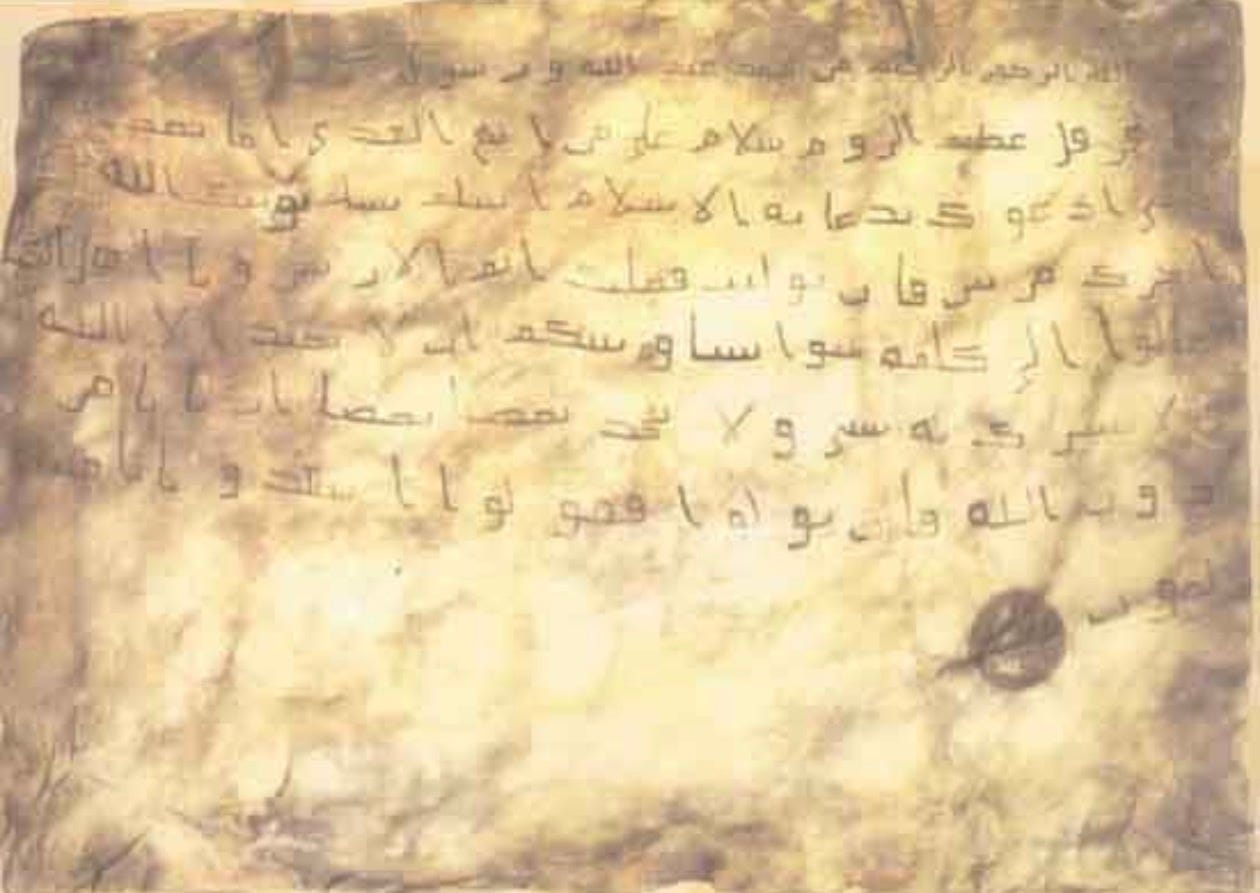 الله الرحمن الرحيم من محمد عبد الله و ر سو ل
هر قل عظيم الر و م سلا م على من ا تبع الهد ى ا ما بعد
ا د عو ك بد عا يه الا سلا م ا سلم تسلم يو تك الله
ا جر ك مر تين فا ن تو ليت فعليك ا ثم ا لا ر يسين و يا ا هل الكتا
تعا لوا ا لى كلمه سو ا بيننا و بينكم ا ن لا نعبد ا لا الله
و لا نشر ك به شى و لا يتخذ بعضنا بعضا ا ر با با من
د و ن الله فا ن تو لو ا فقو لو ا ا شهد و ا با نا مسـ
لمو ن